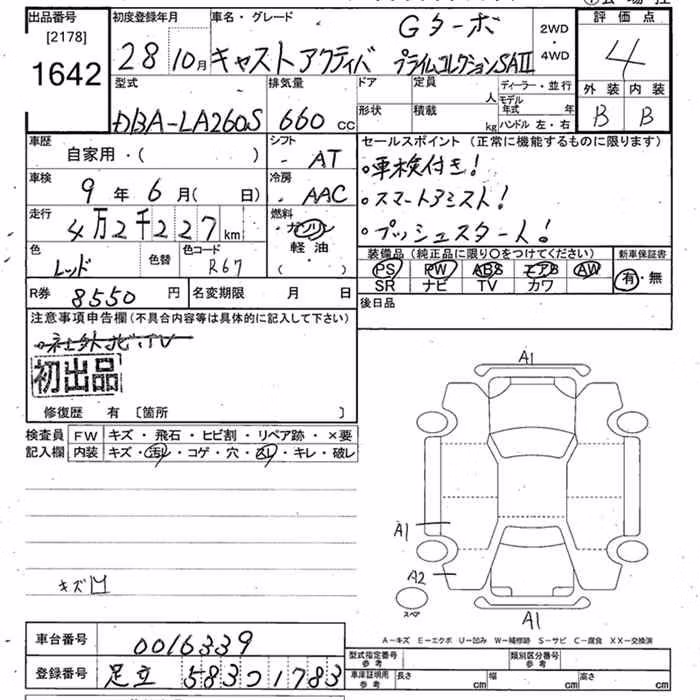 出品番号
[2178]
1642
初度登録年月
28 10月
車名・グレード
Gターボ
キャストアクティバ プライムコレクションSAⅡ
2WD
・
4WD
評価点
4
外装 内装
B B
型式
DBA-LA260S
排気量
660 cc
ドア
定員
人
ディーラー・並行
モデル年式 年
形状
積載
kg
ハンドル 左・右
車歴
自家用・( )
シフト
・ AT
セールスポイント (正常に機能するものに限ります)
・車検付き!
・スマートアシスト!
・プッシュスタート!
車検
9 年 6 月( 日)
冷房
・ AAC
走行
4万2千227km
燃料
・ガソリン
軽油
・( )
色
レッド
色替
色コード
R67
装備品 (純正品に限り○をつけてください)
PS PW ABS エアB AW
SR ナビ TV カワ
新車保証書
有・無
R券 8550 円
名変期限 月 日
後日品
注意事項申告欄 (不具合内容等は具体的に記入して下さい)
・社外ナビ・TV
初出品
修復歴 有 〔箇所 〕
検査員
記入欄
FW キズ・飛石・ヒビ割・リペア跡・×要
内装 キズ・汚れ・コゲ・穴・スレ・キレ・破レ
A1
A1
A2
スペア
A1
キズ凹
A-キズ E-エクボ U-凹み W-補修跡 S-サビ C-腐食 XX-交換済
車台番号 0016339
登録番号 足立 583 つ 1783
型式指定番号
参考
類別区分番号
参考
車庫証明用
参考
長さ cm
幅 cm
高さ cm